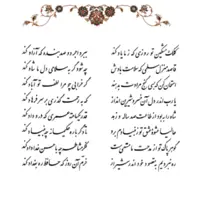 کلک مشکین تو روزی که ز ما یاد کند ببرد اجر دو صد بنده که آزاد کند
قاصد منزل سلمی که سلامت بادش چه شود گر به سلامی دل ما شاد کند
امتحان کن که بسی گنج مرادت بدهند گر خرابی چو مرا لطف تو آباد کند
یا رب اندر دل آن خسرو شیرین انداز که به رحمت گذری بر سر فرهاد کند
شاه را به بود از طاعت صد ساله و زهد قدر یک ساعته عمری که در او داد کند
حالیا عشوه عشق تو ز بنیادم برد تا دگر باره حکیمانه چه بنیاد کند
گوهر پاک تو از مدحت ما مستغنیست فکر مشاطه چه با حسن خداداد کند
ره نبردیم به مقصود خود اندر شیراز خرم آن روز که حافظ ره بغداد کند